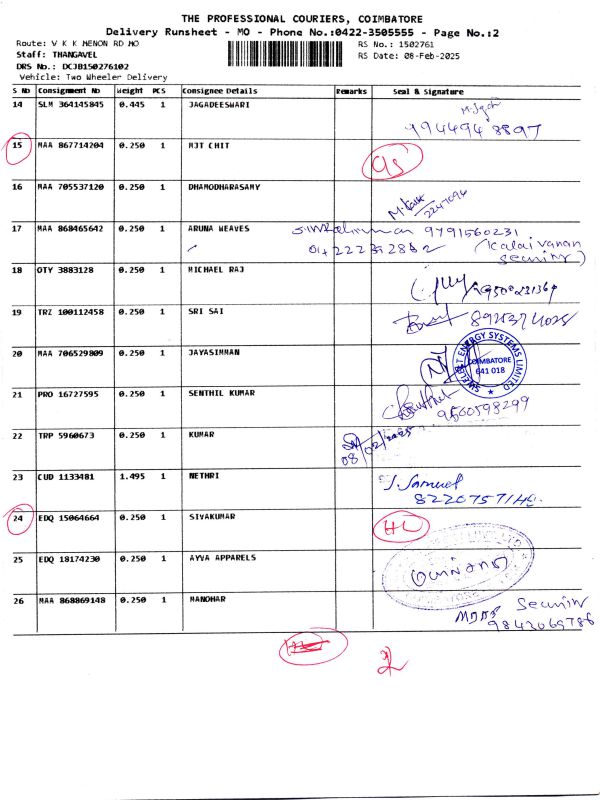 THE PROFESSIONAL COURIERS, COIMBATORE
Delivery Runsheet - MO - Phone No.:0422-3505555 - Page No.:2
Route: V K K MENON RD MO
RS No.: 1502761
Staff: THANGAVEL
RS Date: 08-Feb-2025
DRS No.: DCJB150276102
Vehicle: Two Wheeler Delivery
S No Consignment No Weight PCS Consignee Details Remarks Seal & Signature
14 SLM 364145845 0.445 1 JAGADEESWARI
994494 8897
15 MAA 867714204 0.250 1 MJT CHIT
16 MAA 705537120 0.250 1 DHAMODHARASAMY
17 MAA 868465642 0.250 1 ARUNA WEAVES 9791560231
(Kalaivanan
18 OTY 3883128 0.250 1 MICHAEL RAJ
19 TRZ 100112458 0.250 1 SRI SAI
20 MAA 706529809 0.250 1 JAYASIMMAN
ENERGY SYSTEMS LIMITED
COIMBATORE
641 018
21 PRO 16727595 0.250 1 SENTHIL KUMAR
9560598299
22 TRP 5960673 0.250 1 KUMAR
08/02/2025
23 CUD 1133481 1.495 1 NETHRI
J. Samuel
24 EDQ 15064664 0.250 1 SIVAKUMAR
25 EDQ 18174230 0.250 1 AYVA APPARELS
26 MAA 868869148 0.250 1 MANOHAR
9842069786